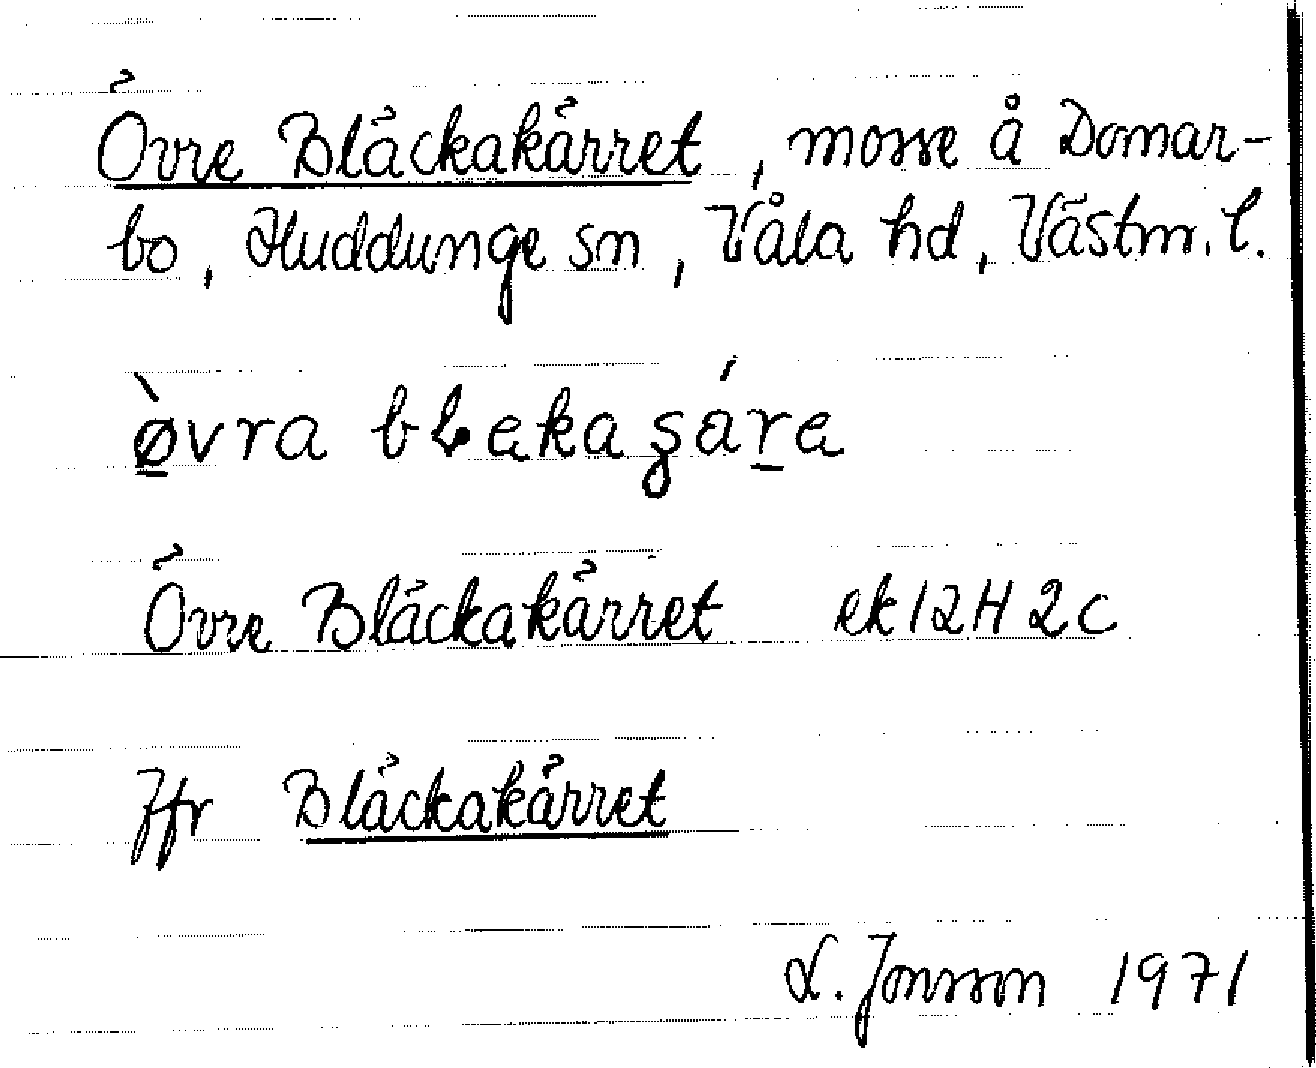 Övre Bläckakärret, mosse å Domar-
bo, Huddunge sn, Våla hd, Västm. l.
ø̀vra bḷekagáre
Övre Bläckakärret ek 12H 2c
Jfr Bläckakärret
L. Jonsson 1971